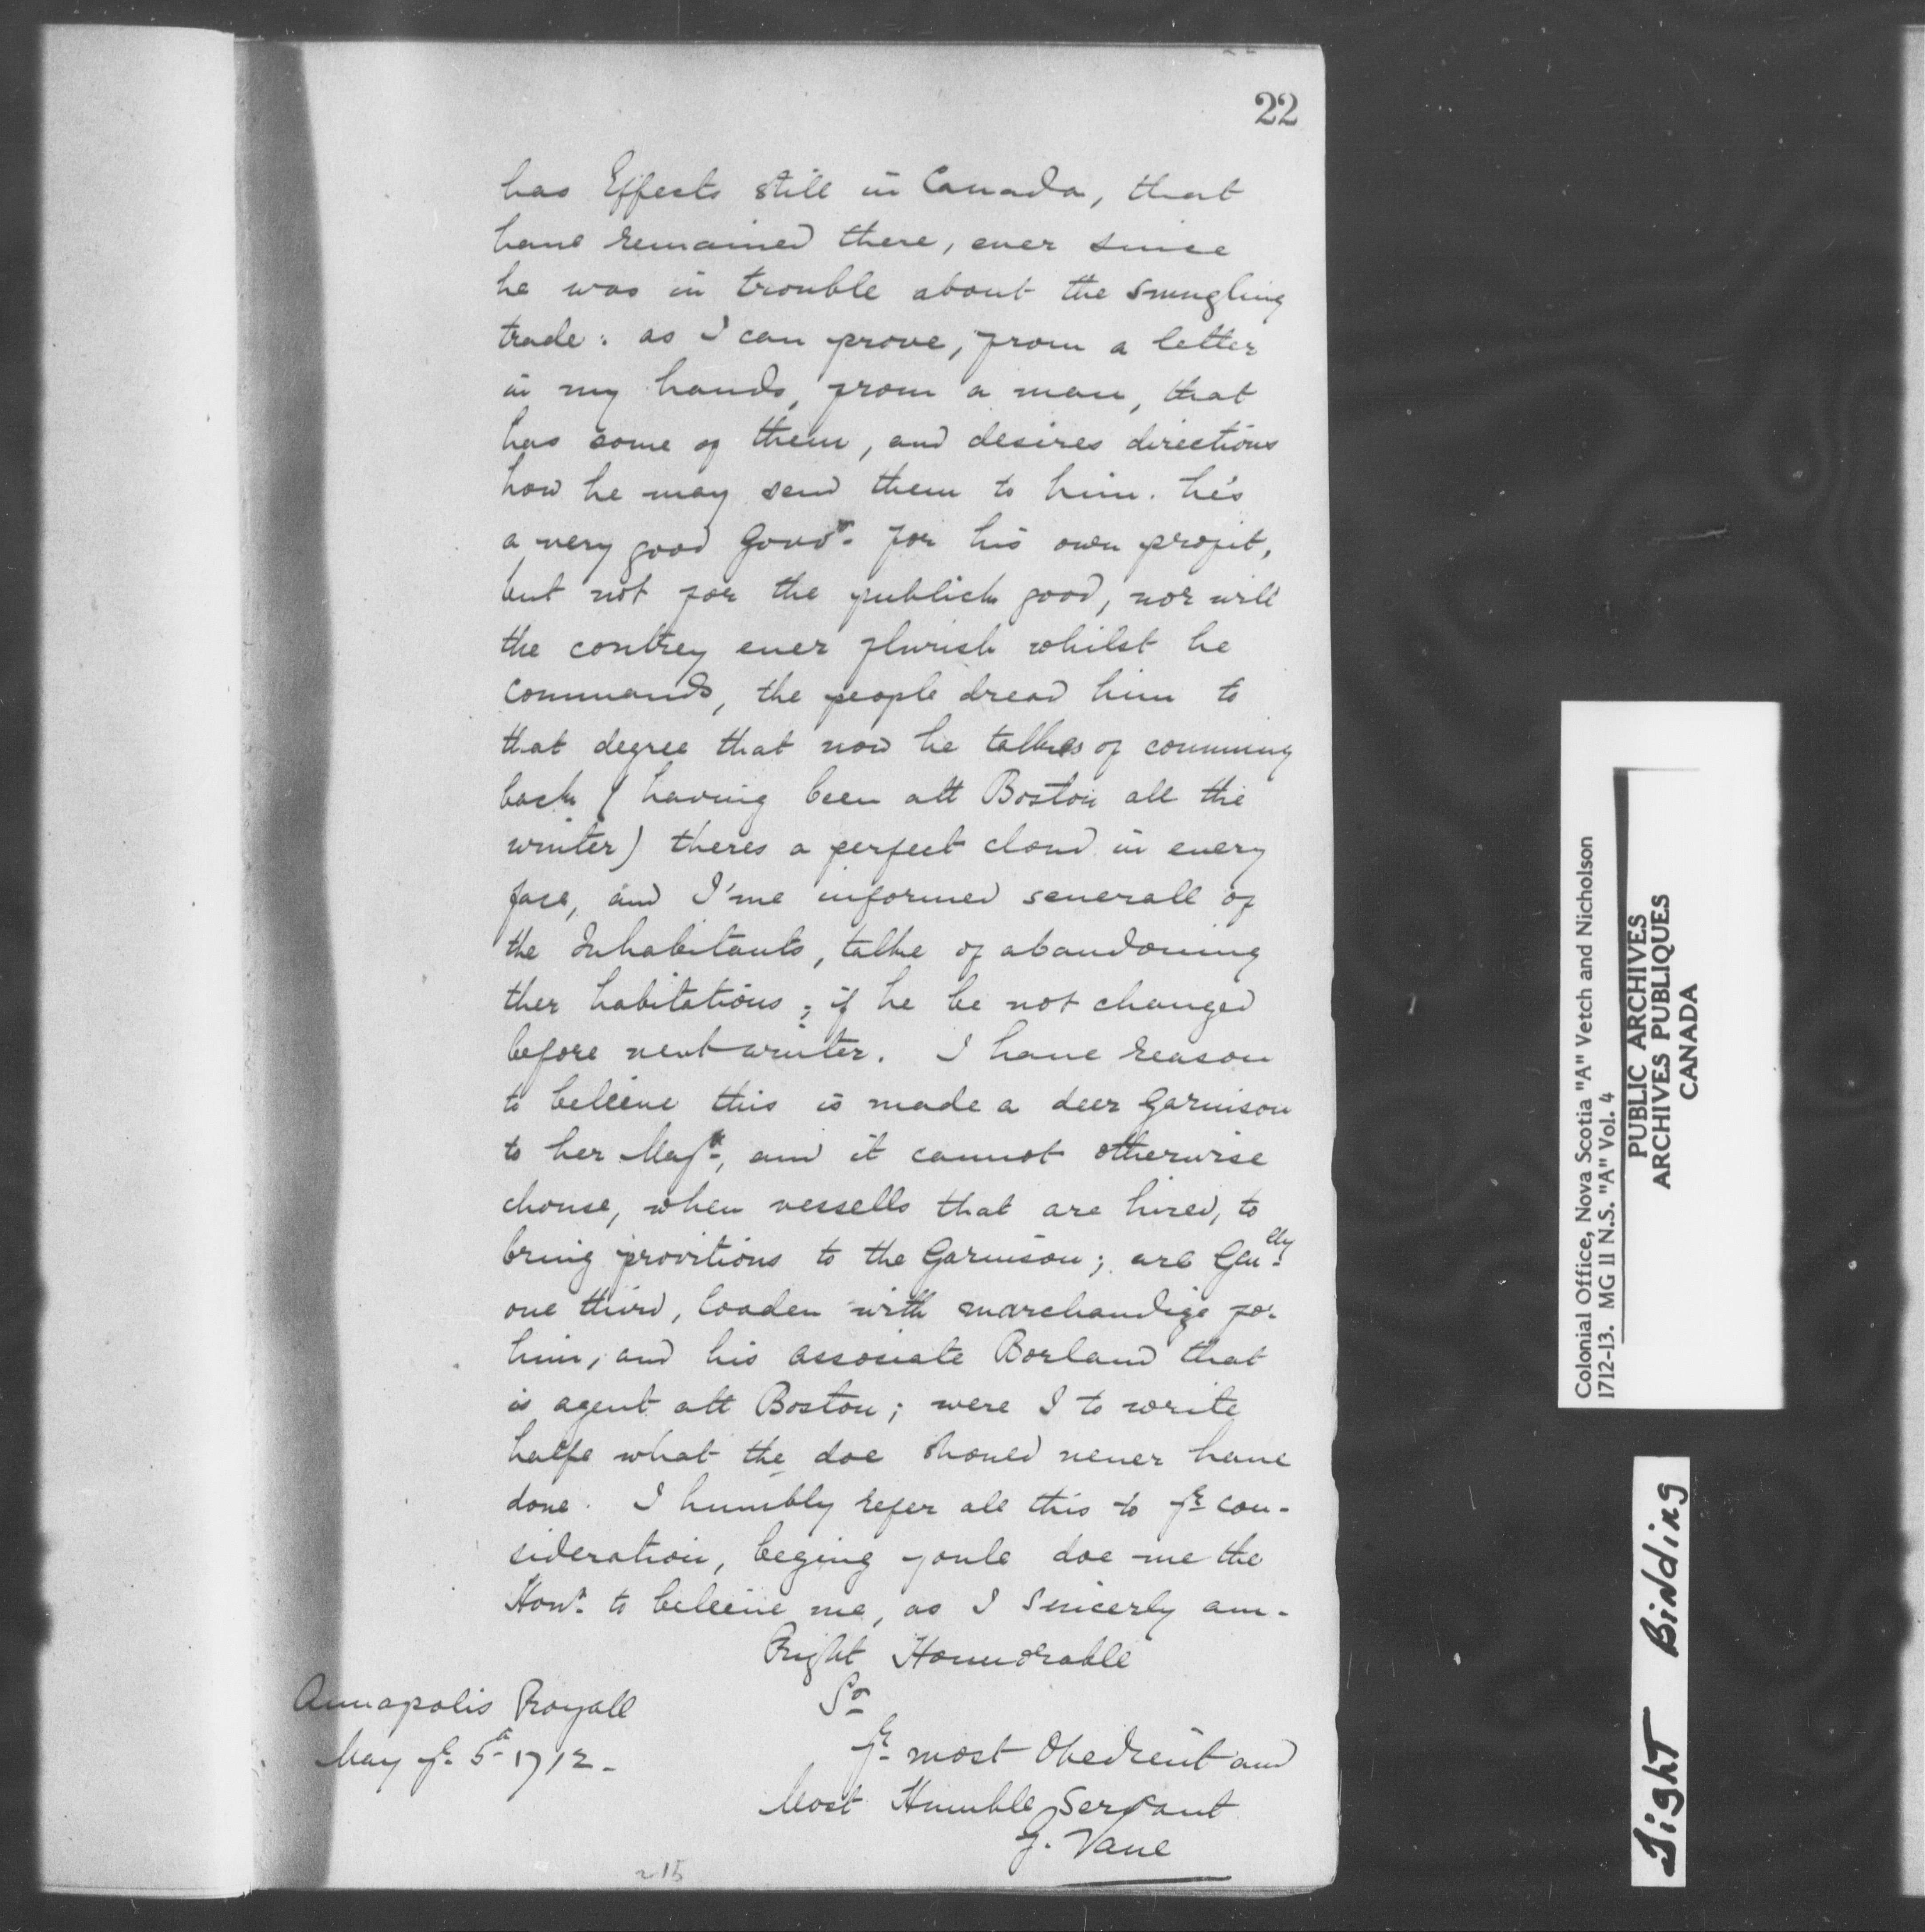 22
has Effects still in Canada, that
have remained there, ever since
he was in trouble about the smugling
trade: as I can prove, from a letter
in my hands, from a man, that
has some of them, and desires directions
how he may send them to him. he's
a very good Govr. for his own profit,
but not for the publick good, nor will
the contrey ever flurish whilst he
commands, the people dread him to
that degree that now he talkes of comming
back (having been att Boston all the
winter) theres a perfect cloud in every
face, and I'me informed severall of
the Inhabitants, talke of abandoning
ther habitations; if he be not changed
before next winter. I have reason
to beleeve this is made a deer Garnison
to her Majty, and it cannot otherwise
chouse, when vessells that are hired, to
bring provitions to the Garnison; are Genlly
one third, loaden with marchandize for
him, and his assosiate Borland that
is agent att Boston; were I to write
halfe what the doe shoued never have
done. I humbly refer all this to yr con-
sideration, beging youle doe me the
Honr. to beleeve me, as I sincerly am-
Right Honnorable
Sr
yr most Obedient and
Most Humble Servant
G. Vane
Annapolis Royall
May ye 5th 1712-
215
Colonial Office, Nova Scotia "A" Vetch and Nicholson
1712-13. MG 11 N.S. "A" Vol. 4
PUBLIC ARCHIVES
ARCHIVES PUBLIQUES
CANADA
Tight Binding